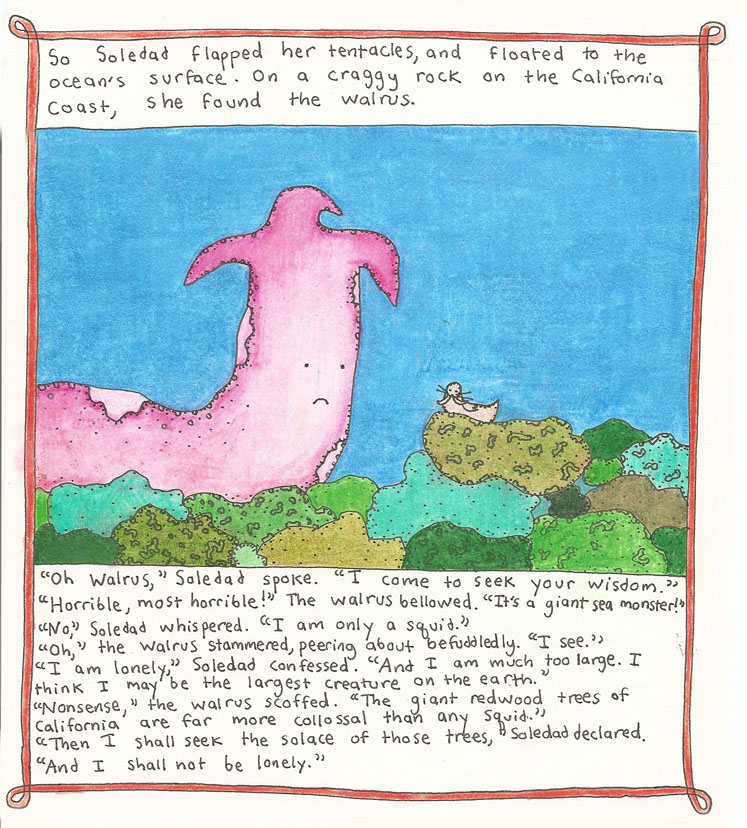 So Soledad flapped her tentacles, and floated to the
ocean's surface. On a craggy rock on the California
Coast, she found the walrus.
"Oh Walrus," Soledad spoke. "I come to seek your wisdom."
"Horrible, most horrible!" The walrus bellowed. "It's a giant sea monster!"
"No," Soledad whispered. "I am only a squid."
"Oh," the walrus stammered, peering about befuddledly. "I see."
"I am lonely," Soledad confessed. "And I am much too large. I
think I may be the largest creature on the earth."
"Nonsense," the walrus scoffed. "The giant redwood trees of
California are far more collossal than any squid."
"Then I shall seek the solace of those trees," Soledad declared.
"And I shall not be lonely."